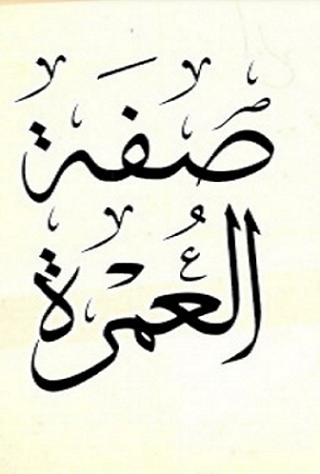 صفة
العُمرة